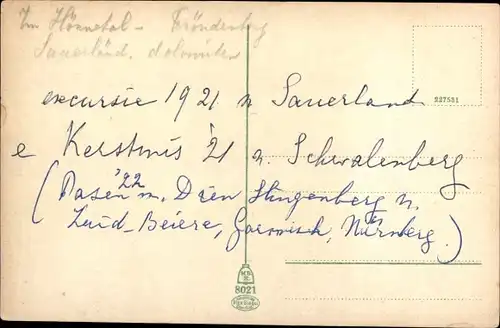 Im Hönnetal - Fröndenberg
Sauerländ. Dolomiten
327551
excursie 1921 n Sauerland
e Kerstmis '21 n. Schwalenberg
(Pasen '22 m. Dien n.
Zuid-Beiere, Garmisch, Nürnberg.)
8021